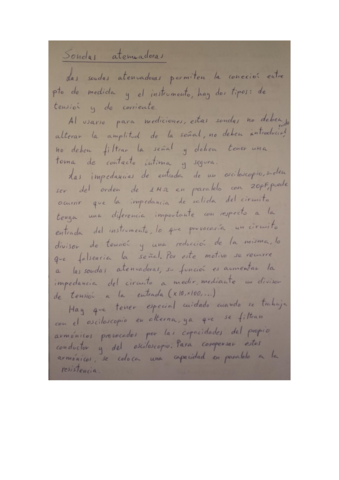 Sondas atenuadoras
Las sondas atenuadoras permiten la conexión entre
pto de medida y el instrumento, hay dos tipos: de
tensión y de corriente.
Al usarse para mediciones, estas sondas no deben
alterar la amplitud de la señal, no deben introducir
no deben filtrar la señal y deben tener una
toma de contacto intima y segura.
Las impedancias de entrada de un osciloscopio, suelen
ser del orden de 1 MΩ en paralelo con 20pF, puede
ocurrir que la impedancia de salida del circuito
tenga una diferencia importante con respecto a la
entrada del instrumento, lo que provocaría un circuito
divisor de tensión y una reducción de la misma, lo
que falsearia la señal. Por este motivo se recurre
a las sondas atenuadoras, su función es aumentar la
impedancia del circuito a medir, mediante un divisor
de tensión a la entrada (x10, x100, ...)
Hay que tener especial cuidado cuando se trabaja
con el osciloscopio en alterna, ya que se filtran
armónicos provocados por las capacidades del propio
conductor y del osciloscopio. Para compensar estos
armónicos, se coloca una capacidad en paralelo a la
resistencia.